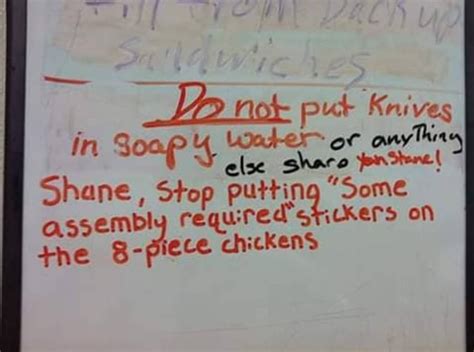 from backup
Sandwiches
Do not put Knives
in soapy water or anyThing
else sharp
Shane, Stop putting "Some
assembly required" stickers on
the 8-piece chickens